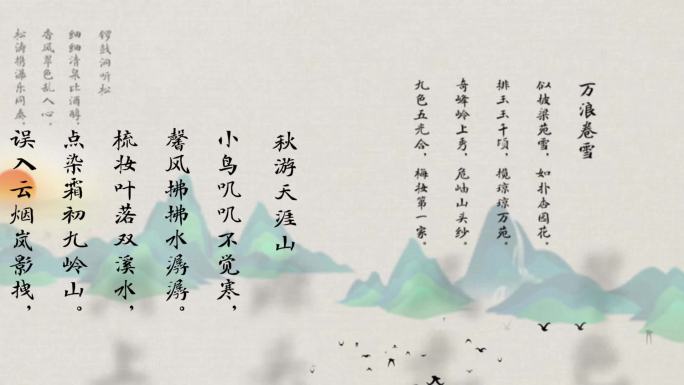 万浪卷雪
似披梁苑雪，如扑杏园花。
排玉玉千顷，榄琼琼万苑。
奇峰岭上秀，危岫山头纱。
九色五光合，梅妆第一家。
秋游天涯山
小鸟叽叽不觉寒，
馨风拂拂水潺潺。
梳妆叶落双溪水，
点染霜初九岭山。
误入云烟岚影拽，
锣鼓洞听松
细细清泉比酒醇，
香风翠色乱人心。
松涛携瀑乐同奏，